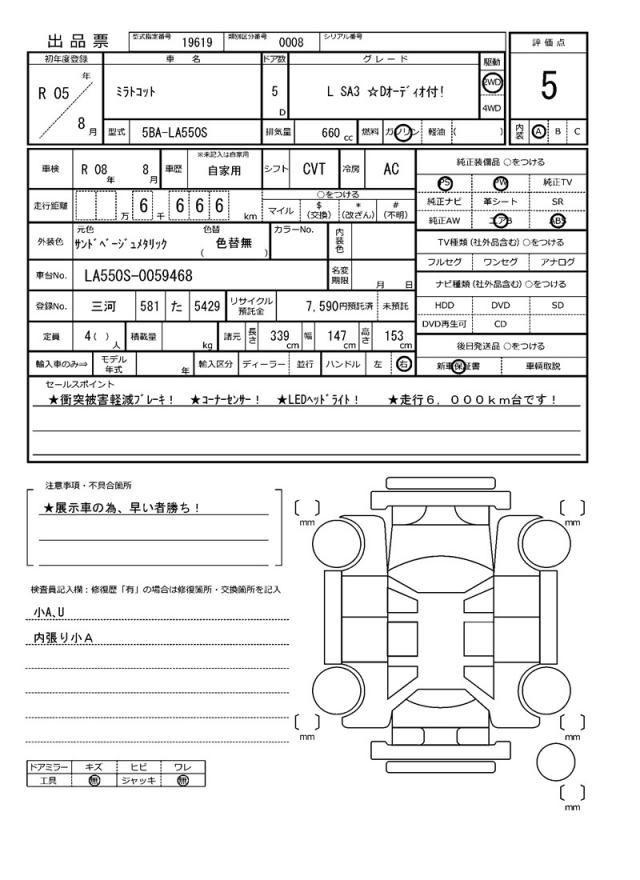 出品票 型式指定番号 19619 類別区分番号 0008 シリアル番号
初年度登録 車名 ドア数 グレード 駆動 評価点
R 05 年 8 月 ﾐﾗﾄｺｯﾄ 5 D L SA3 ☆Dｵｰﾃﾞｨｵ付! 2WD 4WD 5
型式 5BA-LA550S 排気量 660 cc 燃料 ガソリン 軽油 ( ) 内装 A B C
車検 R 08 年 8 月 車歴 ※未記入は自家用 自家用 シフト CVT 冷房 AC
純正装備品 ○をつける
PS PW 純正TV
走行距離 万 6 千 6 6 6 km
○をつける
マイル $(交換) *(改ざん) #(不明)
純正ナビ 革シート SR
純正AW エアB ABS
外装色 元色 ｻﾝﾄﾞﾍﾞｰｼﾞｭﾒﾀﾘｯｸ 色替 ( 色替無 ) カラーNo. 内装色
TV種類 (社外品含む) ○をつける
フルセグ ワンセグ アナログ
車台No. LA550S-0059468 名変期限 月 日
ナビ種類 (社外品含む) ○をつける
登録No. 三河 581 た 5429 リサイクル預託金 7,590円預託済 未預託
HDD DVD SD
DVD再生可 CD
定員 4( )人 積載量 kg 諸元 長さ 339 cm 幅 147 cm 高さ 153 cm
後日発送品 ○をつける
輸入車のみ⇒ モデル年式 年 輸入区分 ディーラー 並行 ハンドル 左 右
新車保証書 車輌取説
セールスポイント
★衝突被害軽減ﾌﾞﾚｰｷ! ★ｺｰﾅｰｾﾝｻｰ! ★LEDﾍｯﾄﾞﾗｲﾄ! ★走行6,000km台です!
注意事項・不具合箇所
★展示車の為、早い者勝ち!
検査員記入欄:修復歴「有」の場合は修復箇所・交換箇所を記入
小A､U
内張り小A
ドアミラー キズ ヒビ ワレ
工具 無 ジャッキ 無
[ ] mm
[ ] mm
[ ] mm
[ ] mm
[ ] mm